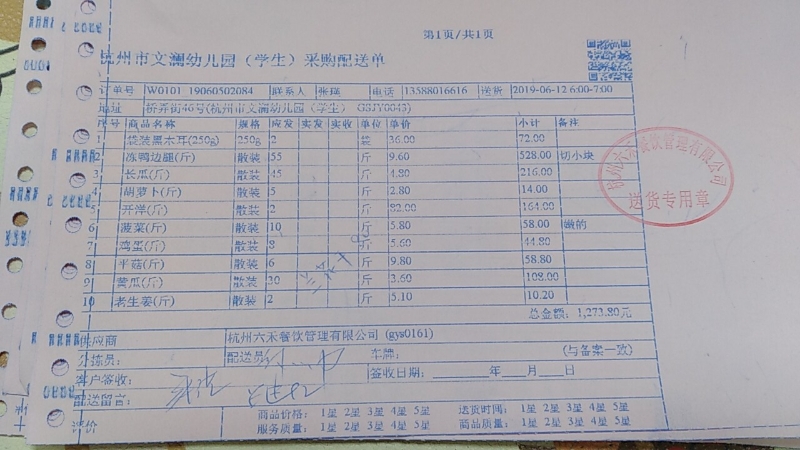 第1页/共1页
杭州市文澜幼儿园（学生）采购配送单
订单号 W0101_19060502084 联系人 张瑶 电话 13588016616 送货 2019-06-12 6:00-7:00
地址 桥弄街46号(杭州市文澜幼儿园（学生） GSJY0043)
序号 商品名称 规格 应发 实发 实收 单位 单价 小计 备注
1 袋装黑木耳(250g) 250g 2 袋 36.00 72.00
2 冻鸭边腿(斤) 散装 55 斤 9.60 528.00 切小块
3 长瓜(斤) 散装 45 斤 4.80 216.00
4 胡萝卜(斤) 散装 5 斤 2.80 14.00
5 开洋(斤) 散装 2 斤 82.00 164.00
6 菠菜(斤) 散装 10 斤 5.80 58.00 嫩的
7 鸡蛋(斤) 散装 8 斤 5.60 44.80
8 平菇(斤) 散装 6 斤 9.80 58.80
9 黄瓜(斤) 散装 30 斤 3.60 108.00
10 老生姜(斤) 散装 2 斤 5.10 10.20
总金额：1,273.80元
杭州六禾餐饮管理有限公司
送货专用章
供应商 杭州六禾餐饮管理有限公司 (gys0161)
分拣员： 配送员 车牌： (与备案一致)
客户签收： 签收日期：______年____月____日
配送留言：
评价 商品价格： 1星 2星 3星 4星 5星 送货时间： 1星 2星 3星 4星 5星
服务质量： 1星 2星 3星 4星 5星 商品质量： 1星 2星 3星 4星 5星